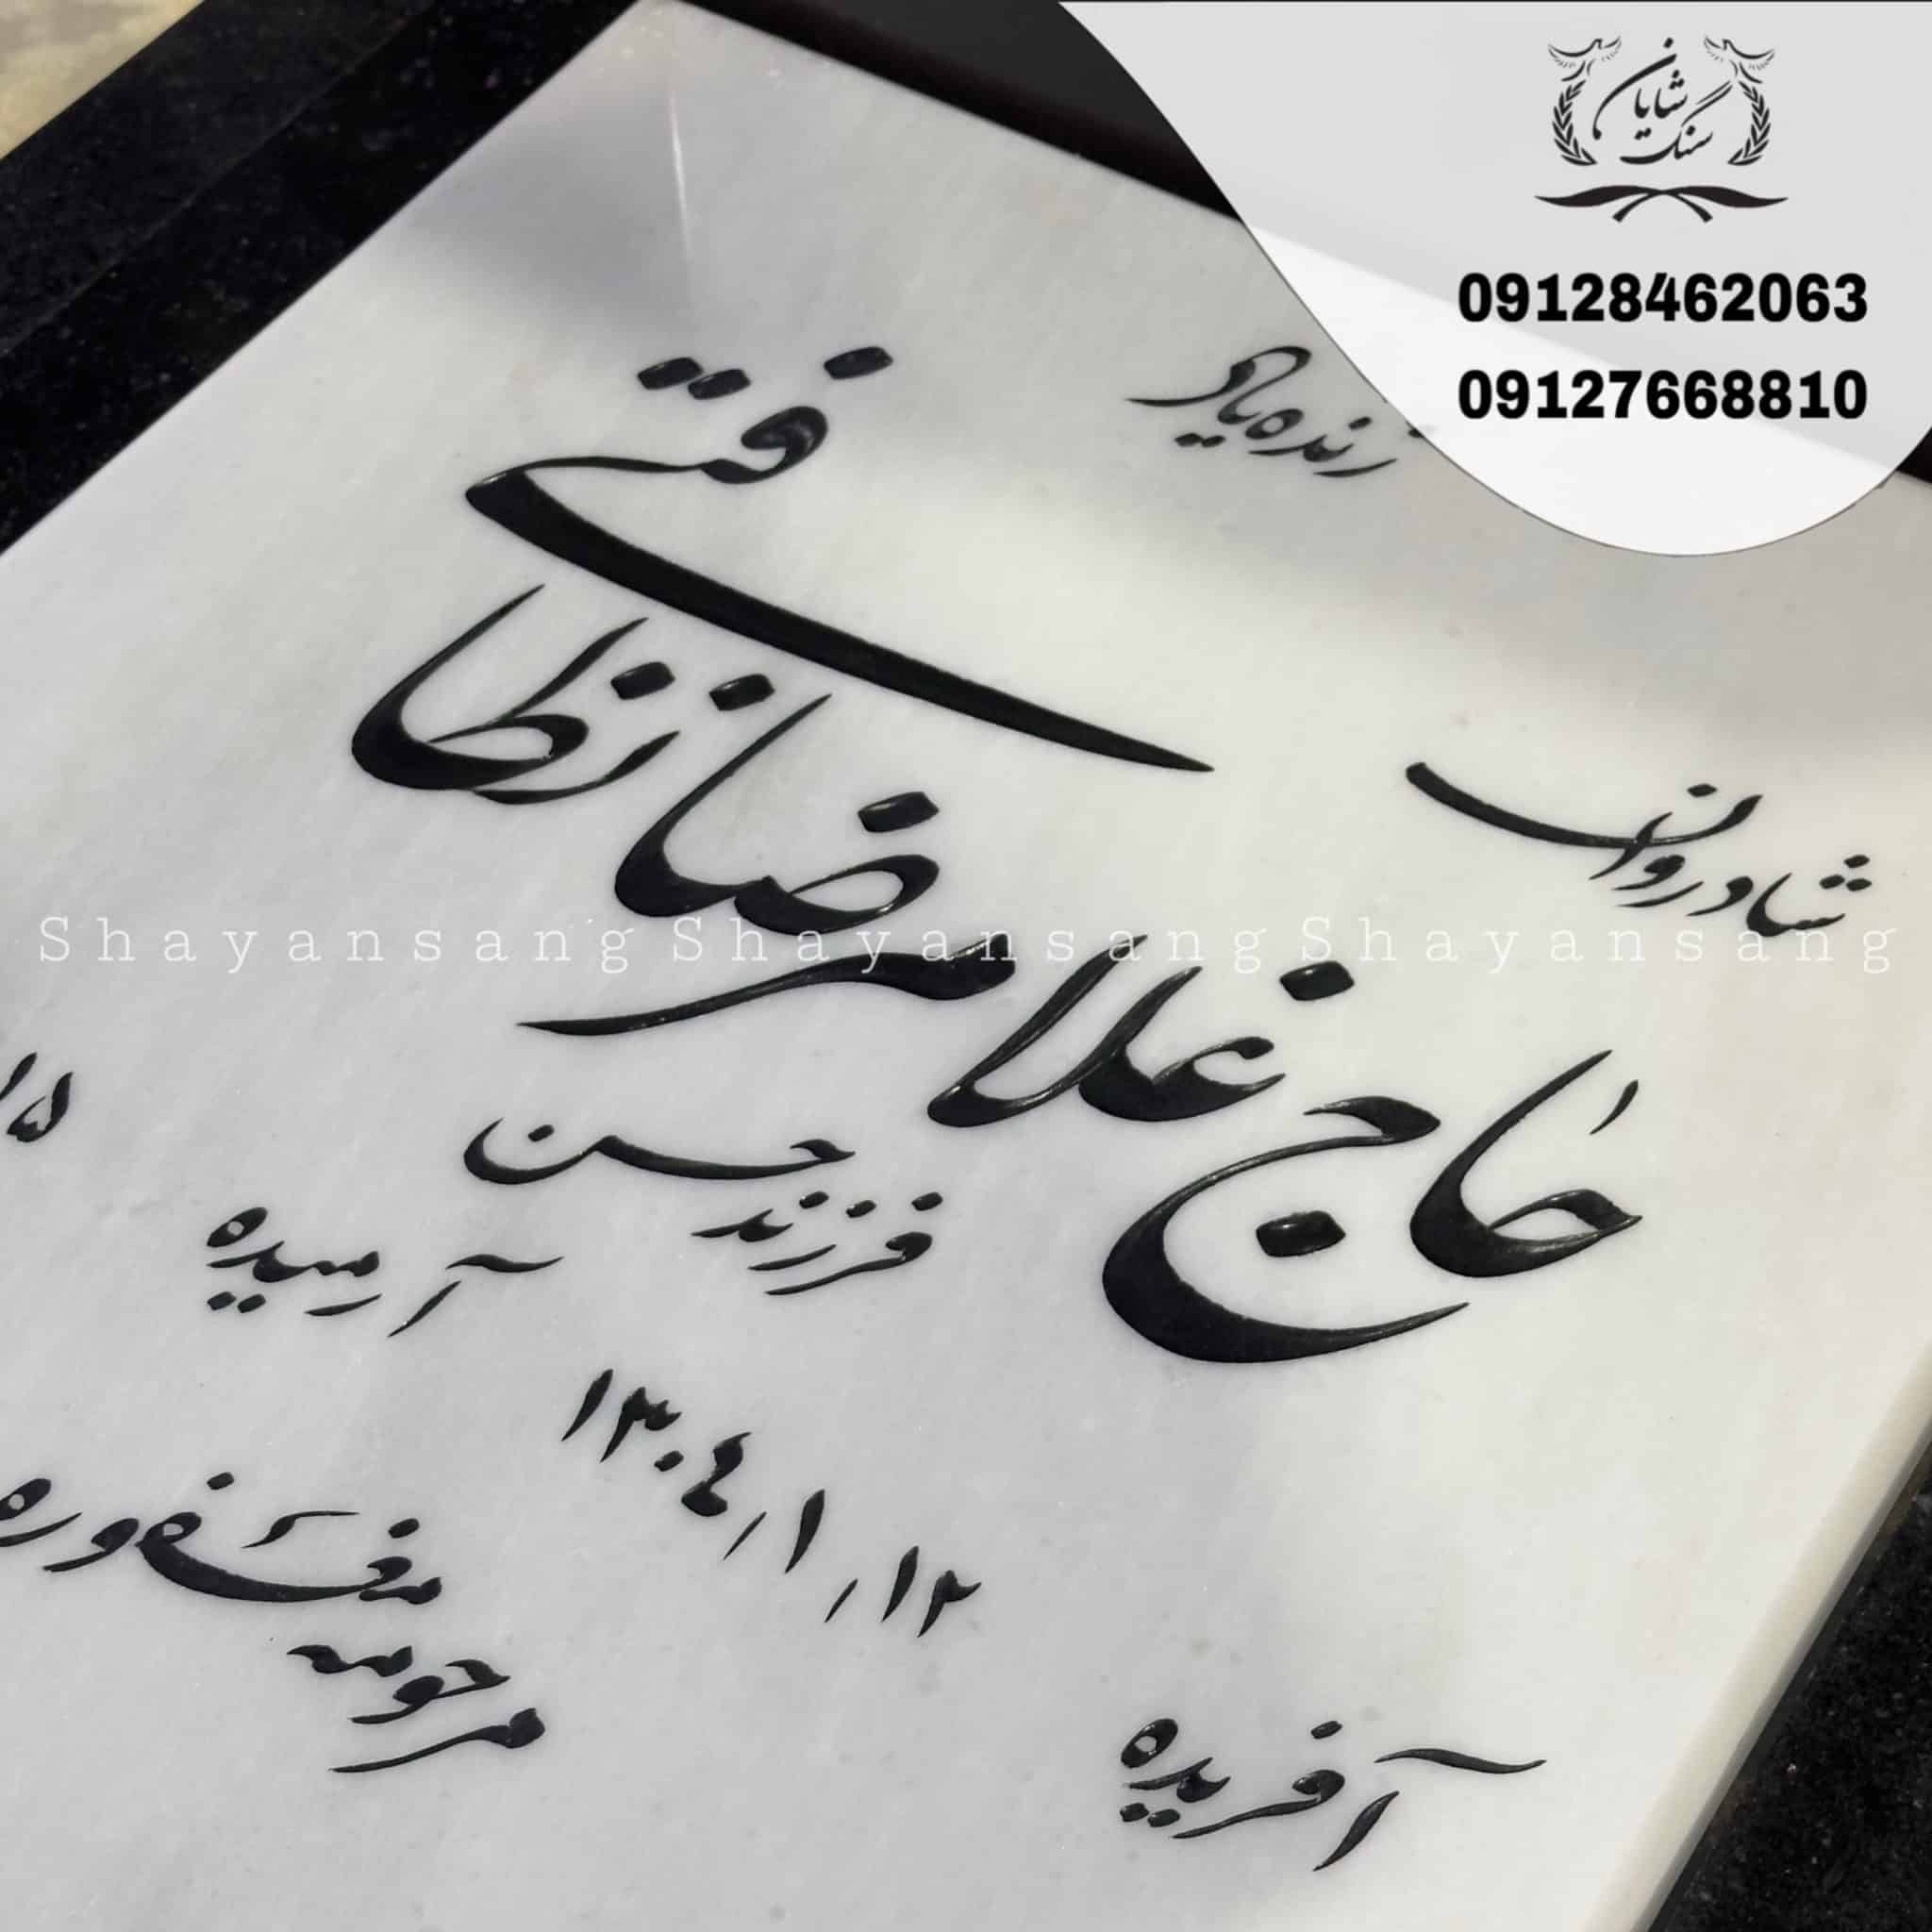 سنگ شایان
09128462063
09127668810
زنده یاد
شادروان
حاج غلامرضا نظافتی
فرزند حسن
آفریده ۱۲/۱/۱۳۰۴
آرمیده
مرحومه مغفوره
Shayansang Shayansang Shayansang